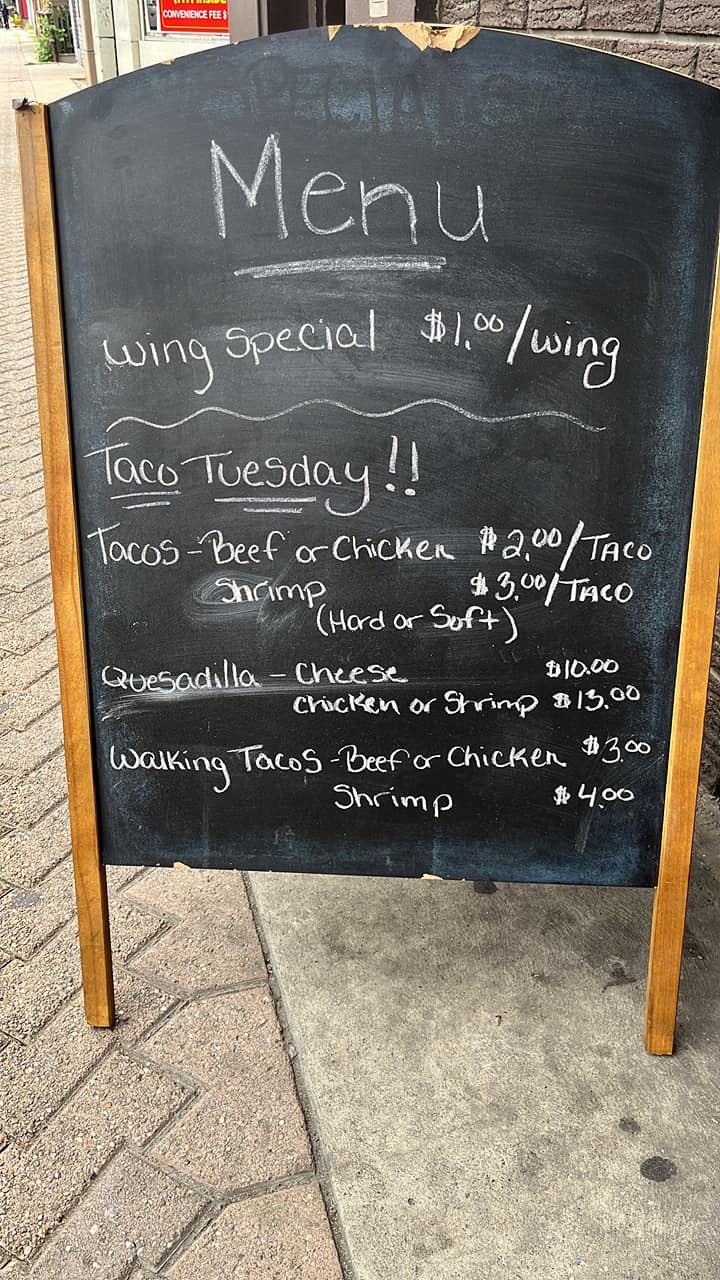 CONVENIENCE FEE $
SPECIALS
Menu
Wing Special $1.00/wing
Taco Tuesday!!
Tacos - Beef or Chicken $2.00/Taco
Shrimp $3.00/Taco
(Hard or Soft)
Quesadilla - Cheese $10.00
Chicken or Shrimp $13.00
Walking Tacos - Beef or Chicken $3.00
Shrimp $4.00